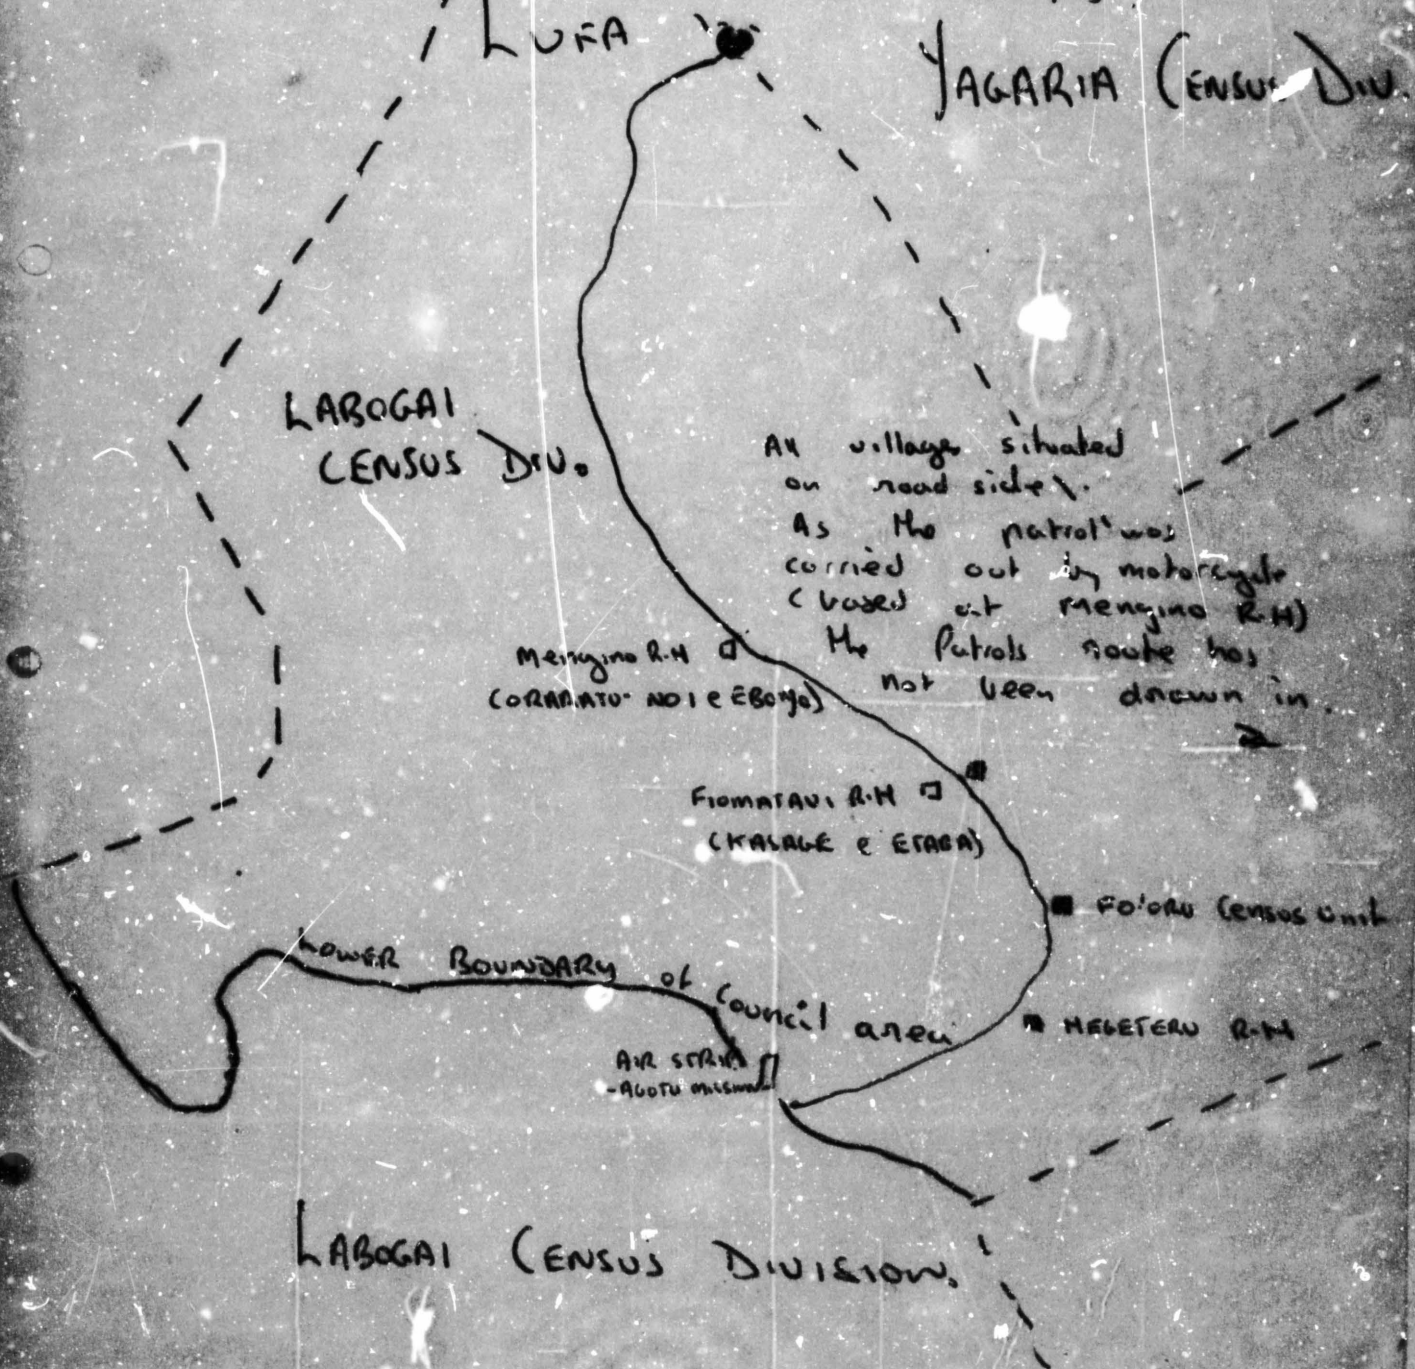 LUFA
YAGARIA CENSUS DIV.
LABOGAI
CENSUS DIV.
All village situated
on road side.
As the patrol was
carried out by motorcycle
(based at Mengino R.H)
the Patrols route has
not been drawn in.
Mengino R.H
(ORABATU NO 1 e EBOYO)
FIOMATAVI R.H
(KASAGE e ETABA)
FO'ORU Census Unit
HEGETERU R.H
LOWER BOUNDARY of Council area
AIR STRIP
-AGOTU MISSION
LABOGAI CENSUS DIVISION.